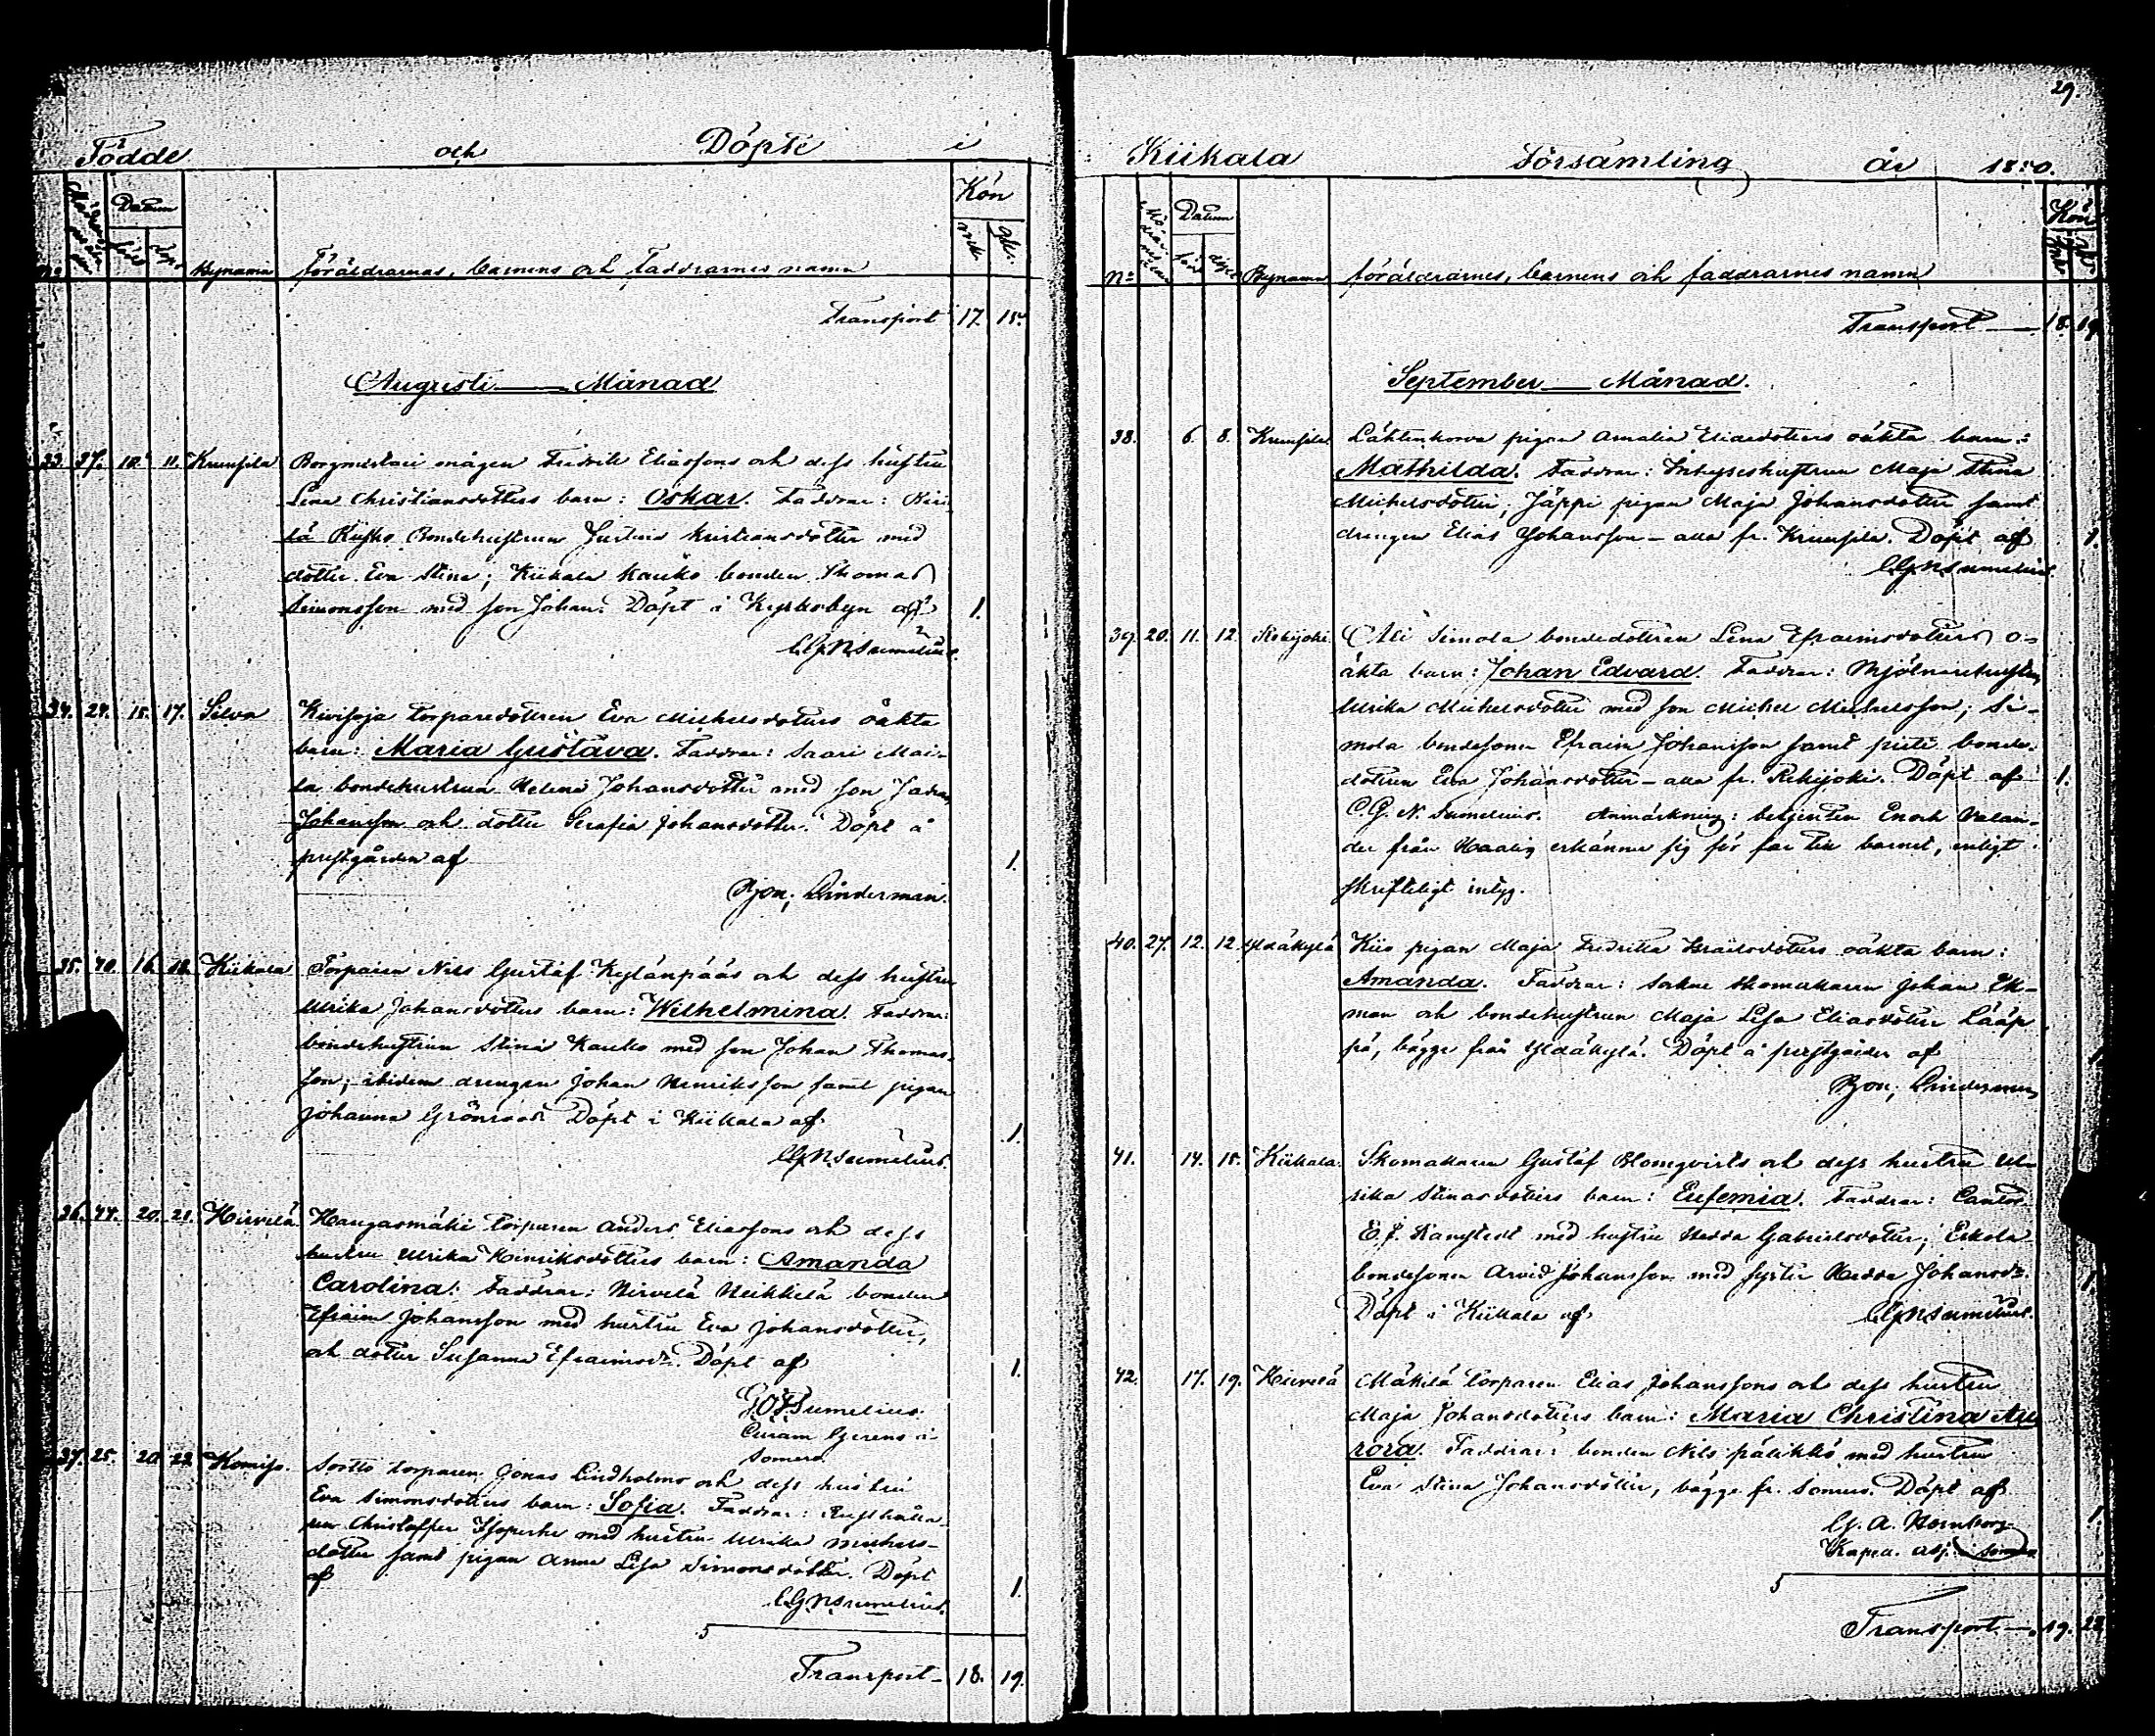 Födde och Döpte i
Mödrarnes ålder Datum Kön
No född döpt Bynamn Föräldrarnas, barnens och Faddrarnes namn mk. qk.
Transport 17. 15.
Augusti Månad
33. 37. 10. 11. Kruusila Borgmestari mågen Fredrik Eliassons och dess hustru
Lena Christiansdotters barn: Oskar. Faddrar: Kii-
la Rusko Bondehustrun Justina Kristiansdotter med
dotter Eva Stina; Kiikala Kauko bonden Thomas
Simonsson med son Johan. Döpt i Kyrkobyn af 1.
C.G.N. Sumelius.
34. 24. 15. 17. Silva Kivisoja torparedottren Eva Michelsdotters oäkta
barn: Maria Gustava. Faddrar: Saari Mai-
la bondehustrun Helena Johansdotter med son
Johansson och dotter Serafia Johansdotter. Döpt å
prestgården af 1.
Bjon; Linderman.
35. 40. 16. 18. Kiikala Torparen Nils Gustaf Kylänpääs och dess hustru
Ulrika Johansdotters barn: Wilhelmina. Faddrar:
bondehustrun Stina Kauko med son Johan Thomas-
son; ibidem drengen Johan Henriksson samt pigan
Johanna Grönroos. Döpt i Kiikala af 1.
C.G.N. Sumelius.
36. 44. 20. 21. Hirvelä Haugasmäki torparen Anders Eliassons och dess
hustru Ulrika Hinriksdotters barn: Amanda
Carolina. Faddrar: Hirvelä Heikkilä bonden
Efraim Johansson med hustru Eva Johansdotter,
och dotter Susanna Efraimsdr. Döpt af 1.
G.O.F. Sumelius
Curam Gerens i
Somero
37. 25. 20. 22. Komiso. Sorttö torparen Jonas Lindholms och dess hustru
Eva Simonsdotters barn: Sofia. Faddrar: Rusthålla-
ren Christoffer Isoperhe med hustru Ulrika Michels-
dotter samt pigan Anna Lisa Simonsdotter. Döpt
af 1.
C.G.N. Sumelius.
5
Transport 18. 19.
29.
Kiikala Församling år 1850.
Mödrarnes ålder Datum Kön
No född döpt Bynamn föräldrarnes, barnens och faddrarnes namn
Transport 18. 19.
September Månad.
38. 6. 8. Kruusila Lähtenkorva pigan Amalia Eliaedotters oäkta barn:
Mathilda. Faddrar: Inhyseshustrun Maja Stina
Michelsdotter, Jäppi pigan Maja Johansdotter samt
drengen Elias Johansson - alla fr. Kruusila. Döpt af 1.
C.G.N. Sumelius.
39. 20. 11. 12. Rekijoki Ali Simola bondedottren Lena Efraimsdotters o-
äkta barn: Johan Edvard. Faddrar: Mjölnarehustru
Ulrika Michelsdotter med son Michel Michelsson; Si-
mola bondesonen Efraim Johansson samt piiti bonde-
dottren Eva Johansdotter - alla fr. Rekijoki. Döpt af 1.
C.G.N. Sumelius. Anmärkning: betjenten Enoch Valan-
der från Haalis erkänner sig för far till barnet, enligt
skriftligt intyg.
40. 27. 12. 12. Yldäkylä Kiis pigan Maja Fredrika Israelsdotters oäkta barn:
Amanda. Faddrar: sockne skomakaren Johan Ek-
man och bondehustrun Maja Lisa Eliasdotter Lääp-
pä, bägge från Yldäkylä. Döpt å prestgården af 1.
Bjon; Linderman
41. 14. 15. Kiikala. Skomakaren Gustaf Blomqvists och dess hustru Ul-
rika Stinasdotters barn: Eufemia. Faddrar: Cantor
E.J. Kanstedt med hustru Hedda Gabrielsdotter; Eskola
bondesonen Arvid Johansson med syster Hedda Johansdr.
Döpt i Kiikala af 1.
C.G.N. Sumelius.
42. 17. 19. Hirvelä Mäkilä torparen Elias Johanssons och dess hustru
Maja Johansdotters barn: Maria Christina Au
rora. Faddrar: bonden Nils pälikkö med hustru
Eva Stina Johansdotter, bägge fr. Somero. Döpt af 1.
G. A. Hornborg
Kapea. adj. i Somero
5
Transport 19. 23